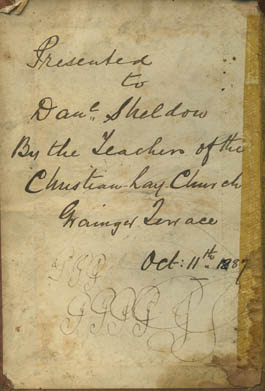 Presented
to
Danl. Sheldow
By the Teachers of the
Christian Lay Church
Grainger Terrace
Oct: 11th 1887